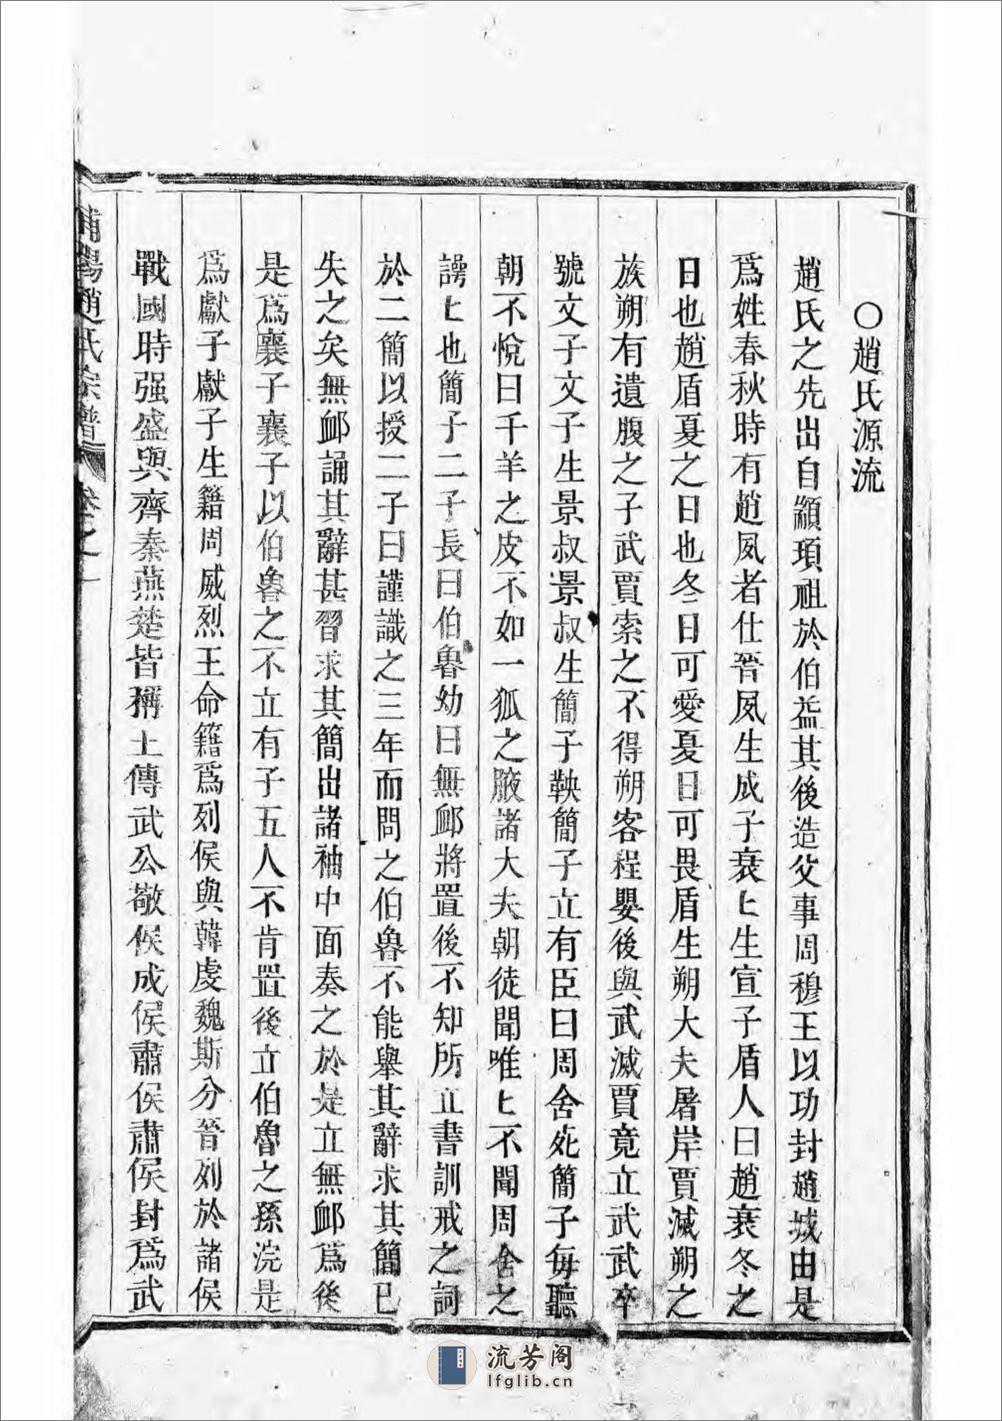 ○趙氏源流
趙氏之先出自顓頊祖於伯益其後造父事周穆王以功封趙城由是
爲姓春秋時有趙夙者仕晉夙生成子衰匕生宣子盾人曰趙衰冬之
日也趙盾夏之日也冬日可愛夏日可畏盾生朔大夫屠岸賈滅朔之
族朔有遺腹之子武賈索之不得朔客程嬰後與武滅賈竟立武武卒
號文子文子生景叔景叔生簡子鞅簡子立有臣曰周舍死簡子每聽
朝不悅曰千羊之皮不如一狐之腋諸大夫朝徒聞唯匕不聞周舍之
諤匕也簡子二子長曰伯魯幼曰無卹將置後不知所立書訓戒之詞
於二簡以授二子曰謹識之三年而問之伯魯不能舉其辭求其簡已
失之矣無卹誦其辭甚習求其簡出諸袖中面奏之於是立無卹爲後
是爲襄子襄子以伯魯之不立有子五人不肯置後立伯魯之孫浣是
爲獻子獻子生籍周威烈王命籍爲列侯與韓虔魏斯分晉列於諸侯
戰國時强盛與齊秦燕楚皆稱王傳武公敬侯成侯肅侯肅侯封爲武
陽趙氏宗譜 卷之一
流芳阁
lfglib.cn